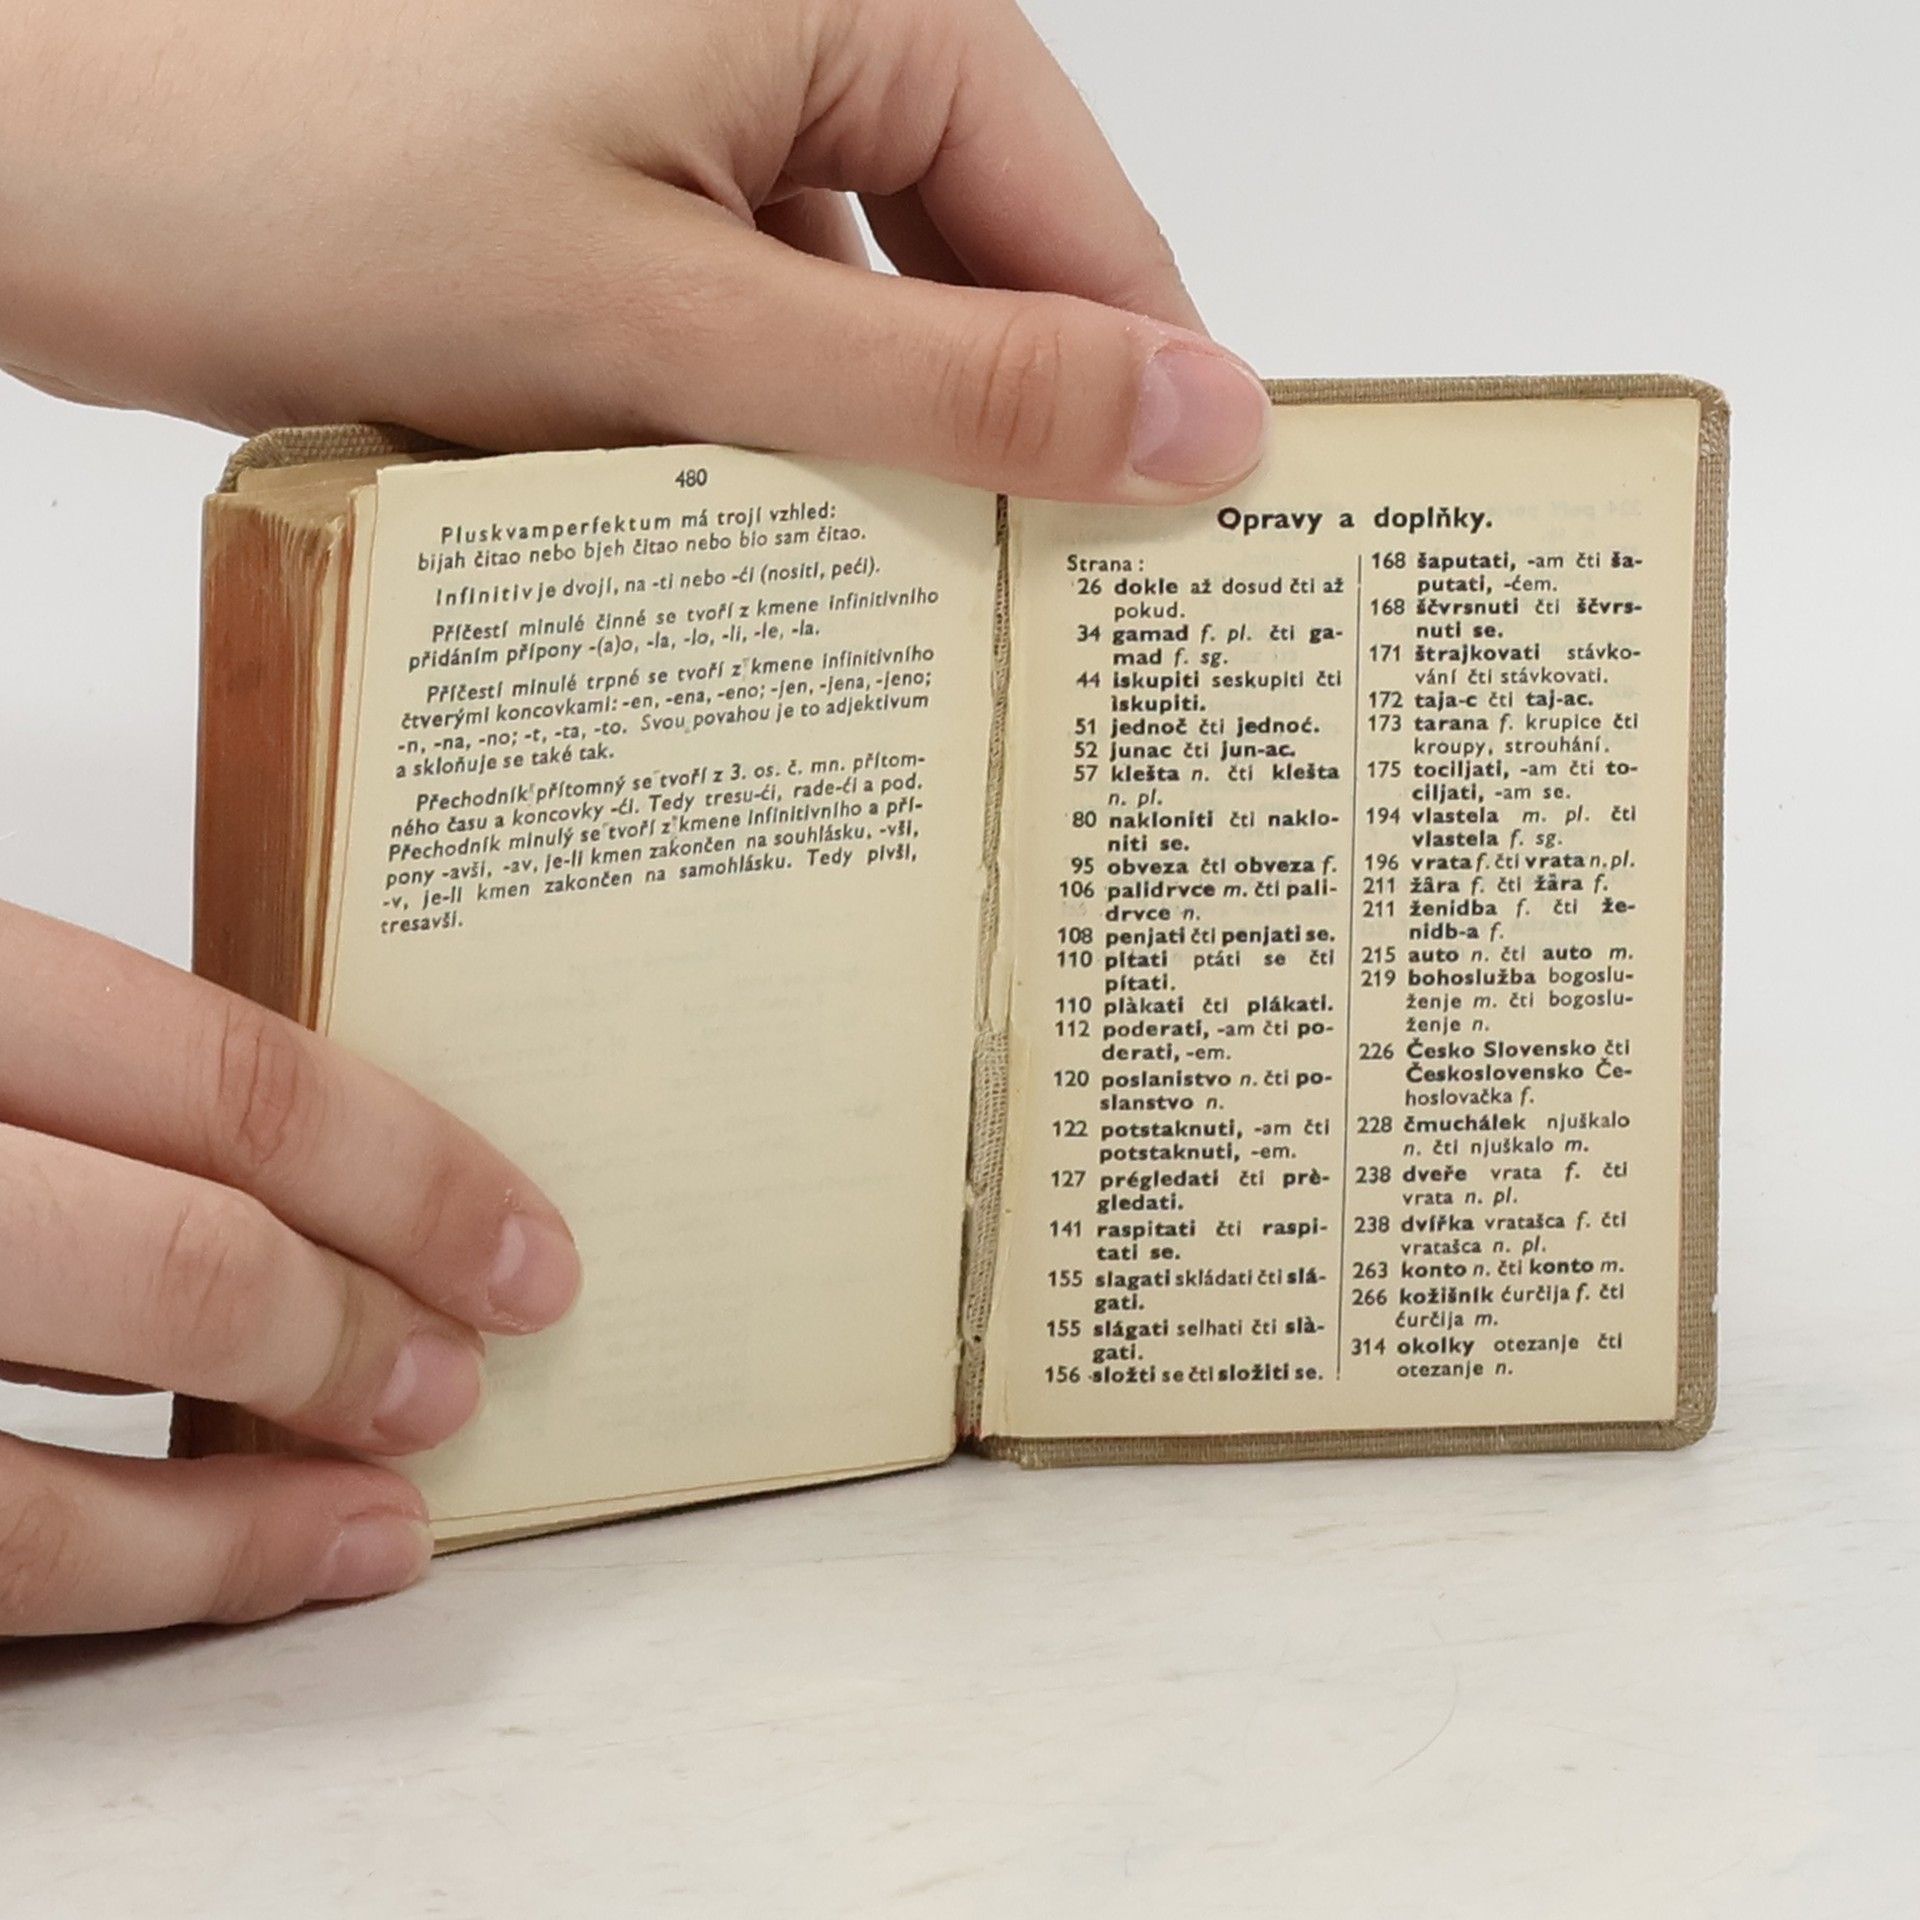 480
Pluskvamperfektum má trojí vzhled:
bijah čitao nebo bjeh čitao nebo bio sam čitao.
Infinitiv je dvojí, na -ti nebo -ći (nositi, peći).
Příčestí minulé činné se tvoří z kmene infinitivního
přidáním přípony -(a)o, -la, -lo, -li, -le, -la.
Příčestí minulé trpné se tvoří z kmene infinitivního
čtverými koncovkami: -en, -ena, -eno; -jen, -jena, -jeno;
-n, -na, -no; -t, -ta, -to. Svou povahou je to adjektivum
a skloňuje se také tak.
Přechodník přítomný se tvoří z 3. os. č. mn. přítom-
ného času a koncovky -ći. Tedy tresu-ći, rade-ći a pod.
Přechodník minulý se tvoří z kmene infinitivního a pří-
pony -avši, -av, je-li kmen zakončen na souhlásku, -vši,
-v, je-li kmen zakončen na samohlásku. Tedy pivši,
tresavši.
Opravy a doplňky.
Strana:
26 dokle až dosud čti až
pokud.
34 gamad f. pl. čti ga-
mad f. sg.
44 iskupiti seskupiti čti
ìskupiti.
51 jednoč čti jednoć.
52 junac čti jun-ac.
57 klešta n. čti klešta
n. pl.
80 nakloniti čti naklo-
niti se.
95 obveza čti obveza f.
106 palidrvce m. čti pali-
drvce n.
108 penjati čti penjati se.
110 pitati ptáti se čti
pítati.
110 plàkati čti plákati.
112 poderati, -am čti po-
derati, -em.
120 poslanistvo n. čti po-
slanstvo n.
122 potstaknuti, -am čti
potstaknuti, -em.
127 prégledati čti prè-
gledati.
141 raspitati čti raspi-
tati se.
155 slagati skládati čti slá-
gati.
155 slágati selhati čti slà-
gati.
156 složti se čti složiti se.
168 šaputati, -am čti ša-
putati, -ćem.
168 ščvrsnuti čti ščvrs-
nuti se.
171 štrajkovati stávko-
vání čti stávkovati.
172 taja-c čti taj-ac.
173 tarana f. krupice čti
kroupy, strouhání.
175 tociljati, -am čti to-
ciljati, -am se.
194 vlastela m. pl. čti
vlastela f. sg.
196 vrata f. čti vrata n. pl.
211 žâra f. čti žȁra f.
211 ženidba f. čti že-
nidb-a f.
215 auto n. čti auto m.
219 bohoslužba bogoslu-
ženje m. čti bogoslu-
ženje n.
226 Česko Slovensko čti
Československo Če-
hoslovačka f.
228 čmuchálek njuškalo
n. čti njuškalo m.
238 dveře vrata f. čti
vrata n. pl.
238 dvířka vratašca f. čti
vratašca n. pl.
263 konto n. čti konto m.
266 kožišník ćurčija f. čti
ćurčija m.
314 okolky otezanje čti
otezanje n.